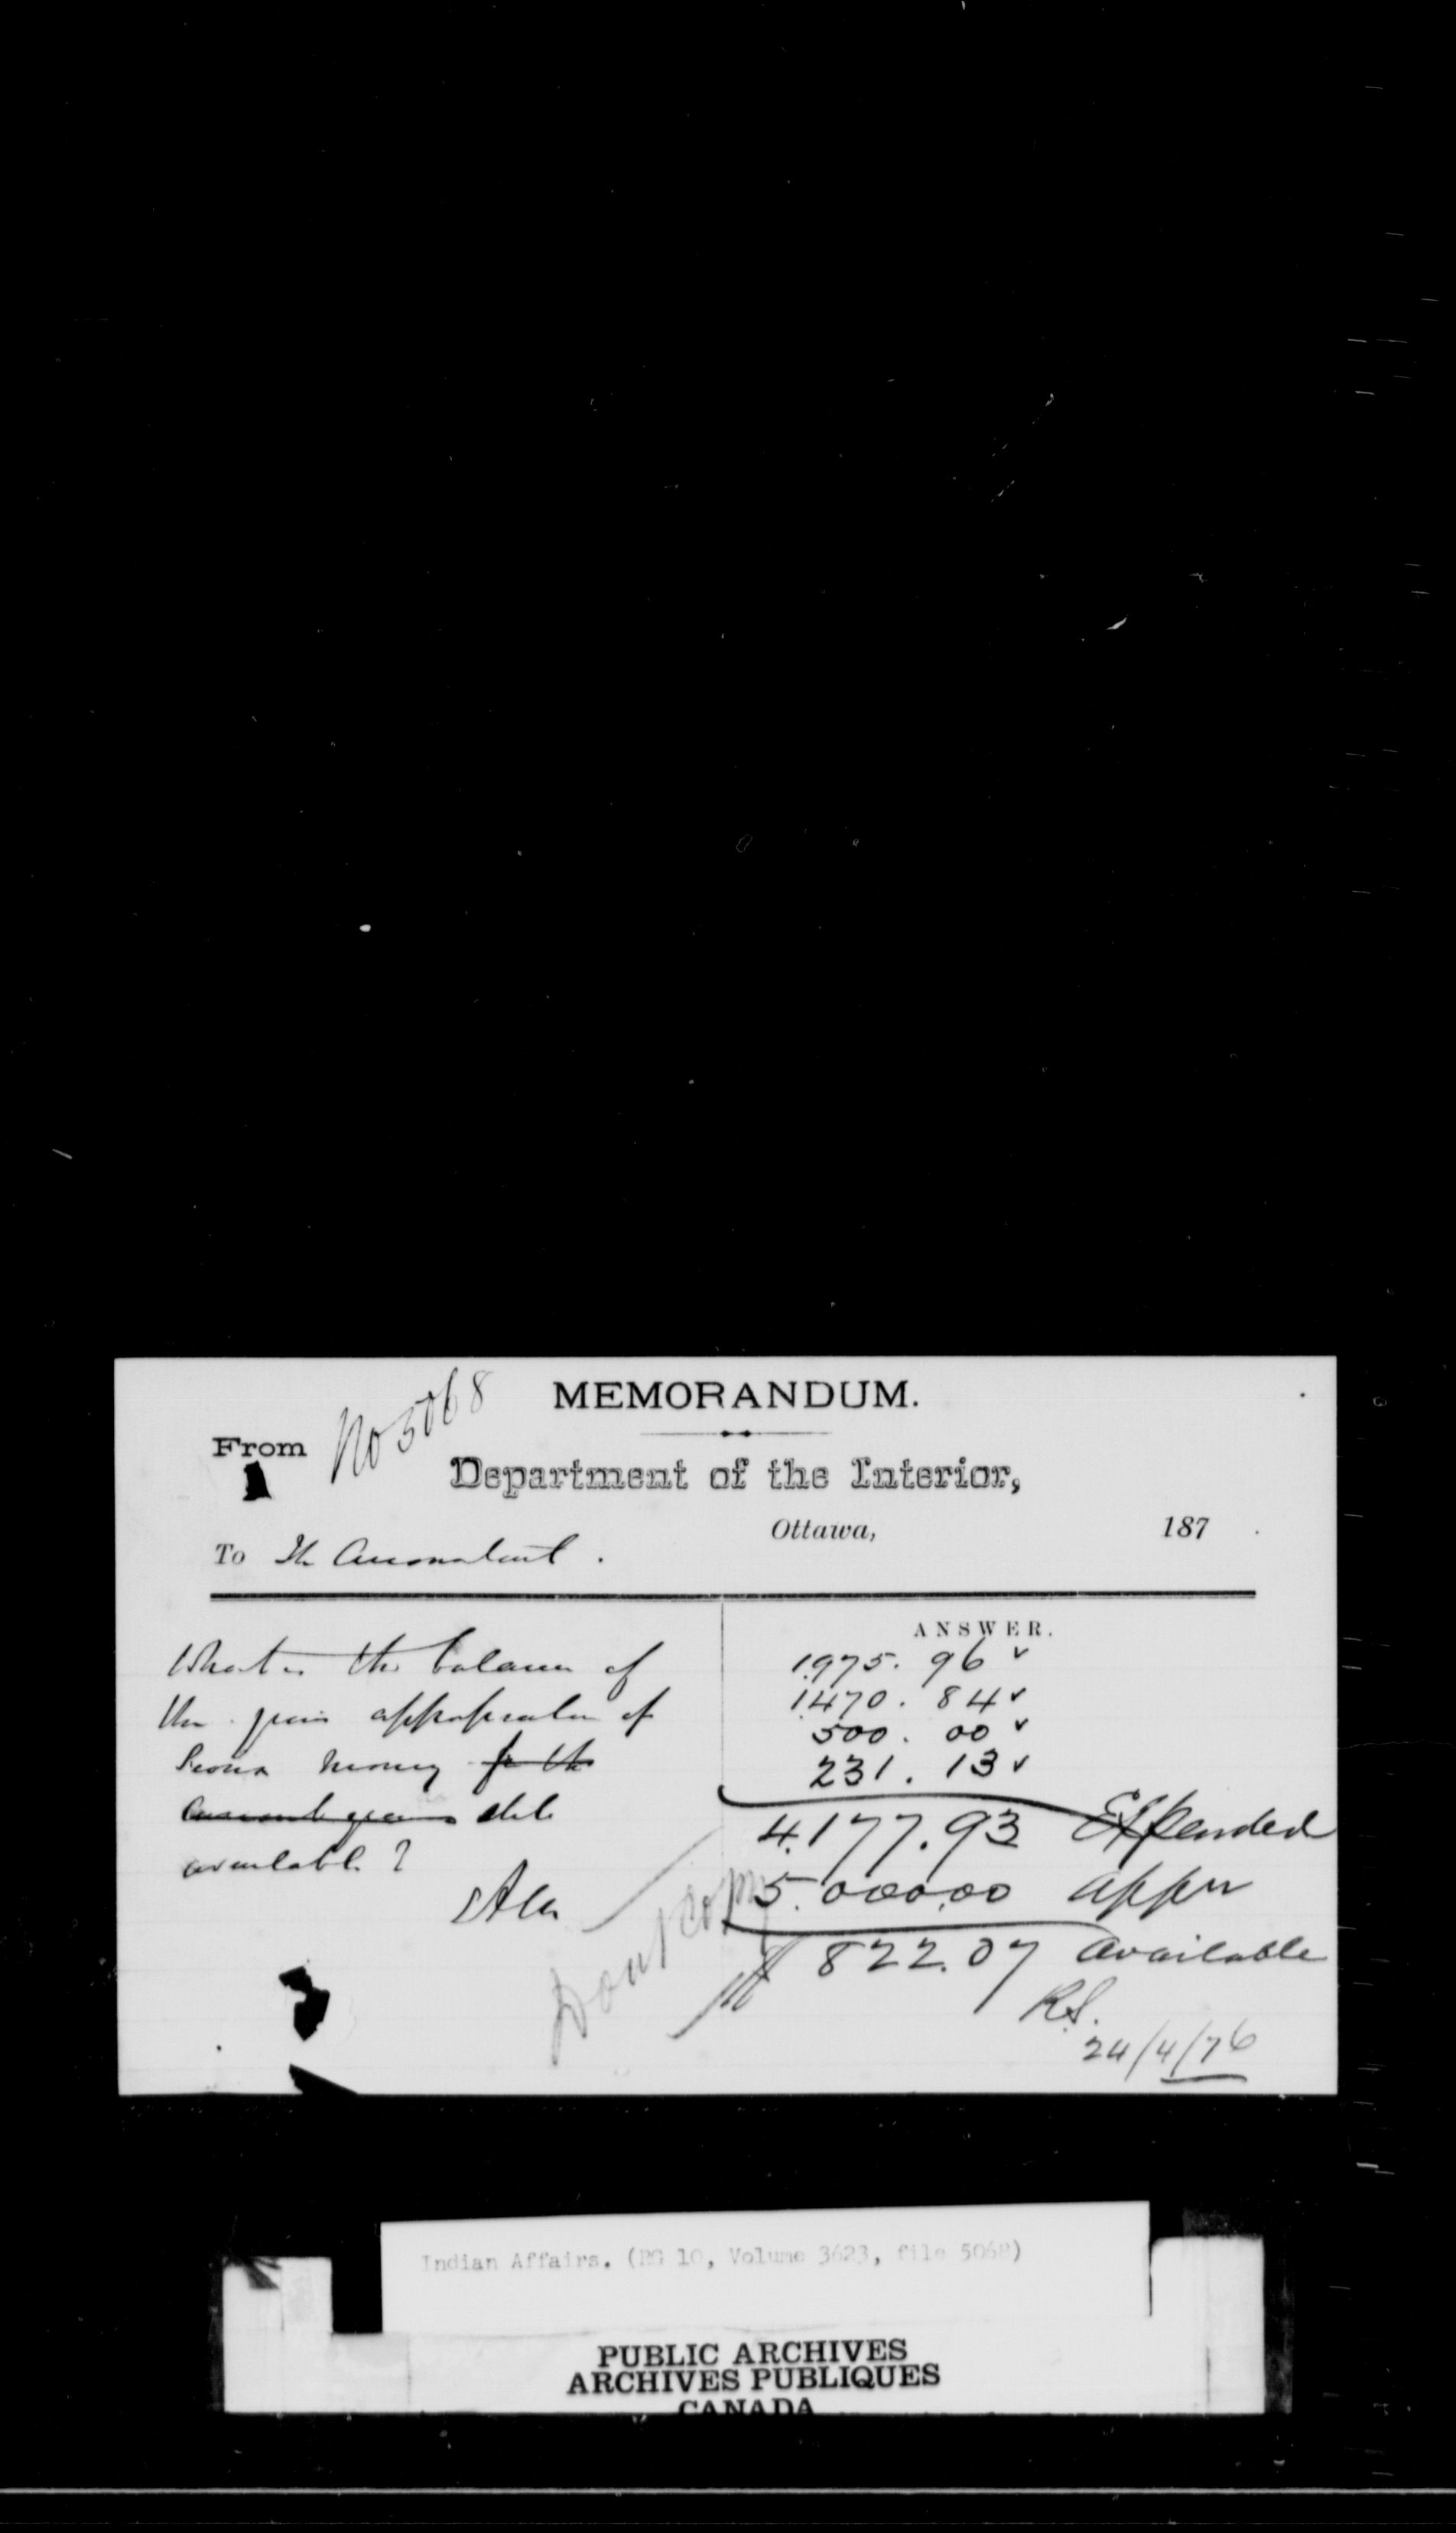 No 5068
MEMORANDUM.
From
Department of the Interior,
Ottawa, 187
To The Accountant.
ANSWER.
What is the balance of
the appropriation of
money for the
current year still
available?
1.975.96 ✓
1.470.84 ✓
500.00 ✓
231.13 ✓
4.177.93 Expended
5.000.00 appn
$ 822.07 available
Dont Copy
R.S.
24/4/76
Indian Affairs. (RG 10, Volume 3623, file 5068)
PUBLIC ARCHIVES
ARCHIVES PUBLIQUES
CANADA